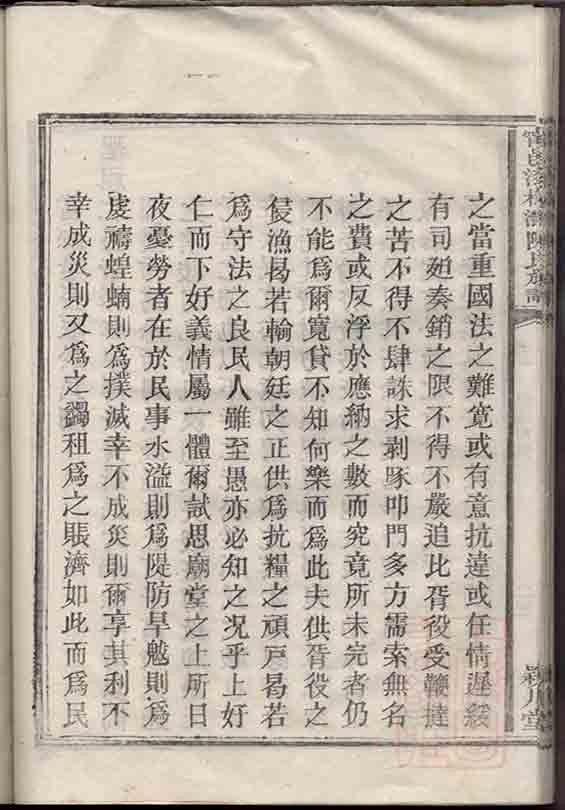 之當重國法之難寬或有意抗違或任情遲緩
有司廹奏銷之限不得不嚴追比胥役受鞭撻
之苦不得不肆誅求剥啄叩門多方需索無名
之費或反浮於應納之數而究竟所未完者仍
不能爲爾寬貸不知何樂而爲此夫供胥役之
侵漁曷若輸朝廷之正供爲抗糧之頑戸曷若
爲守法之良民人雖至愚亦必知之況乎上好
仁而下好義情屬一體爾試思廟堂之上所日
夜憂勞者在於民事水溢則爲隄防旱魃則爲
虔禱蝗蝻則爲撲滅幸不成災則爾享其利不
幸成災則又爲之蠲租爲之賑濟如此而爲民
陳氏族譜
潁川堂